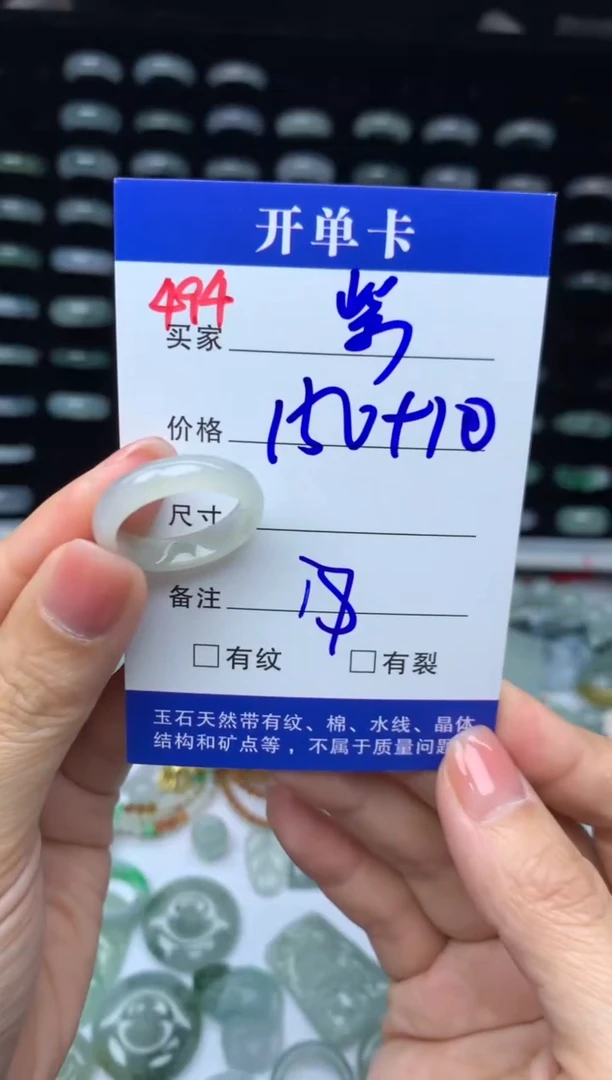 开单卡
494
买家 柴
价格 150+10
尺寸
备注
有纹 有裂
玉石天然带有纹、棉、水线、晶体
结构和矿点等，不属于质量问题